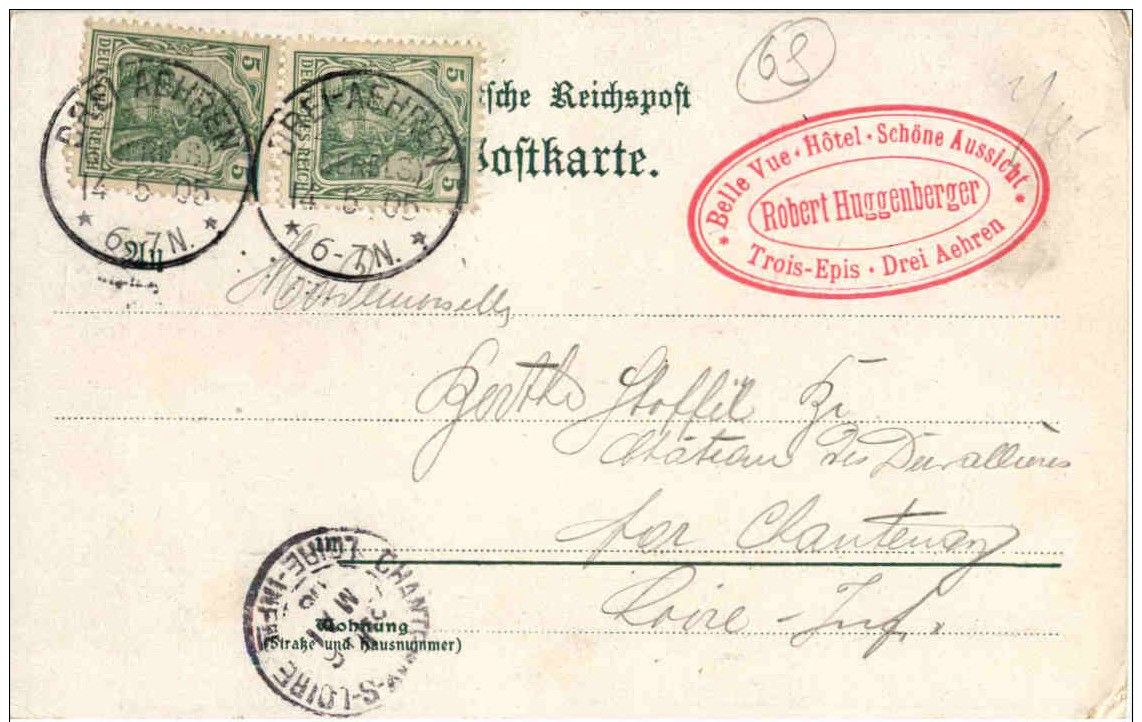 5 5
DEUTSCHES REICH DEUTSCHES REICH
DREI-AEHREN
14 5 05
* 6-7N. *
DREI-AEHREN
14 5 05
* 6-7N. *
63
tsche Reichspost
Postkarte.
* Belle Vue · Hôtel · Schöne Aussicht *
Robert Huggenberger
Trois-Epis · Drei Aehren
An
Mademoiselle
Berthe Stoffel
Château des
par Chantenay
Loire-Inf.
CHANT S-LOIRE LOIRE-INFRE
MAI
Wohnung
(Straße und Hausnummer)